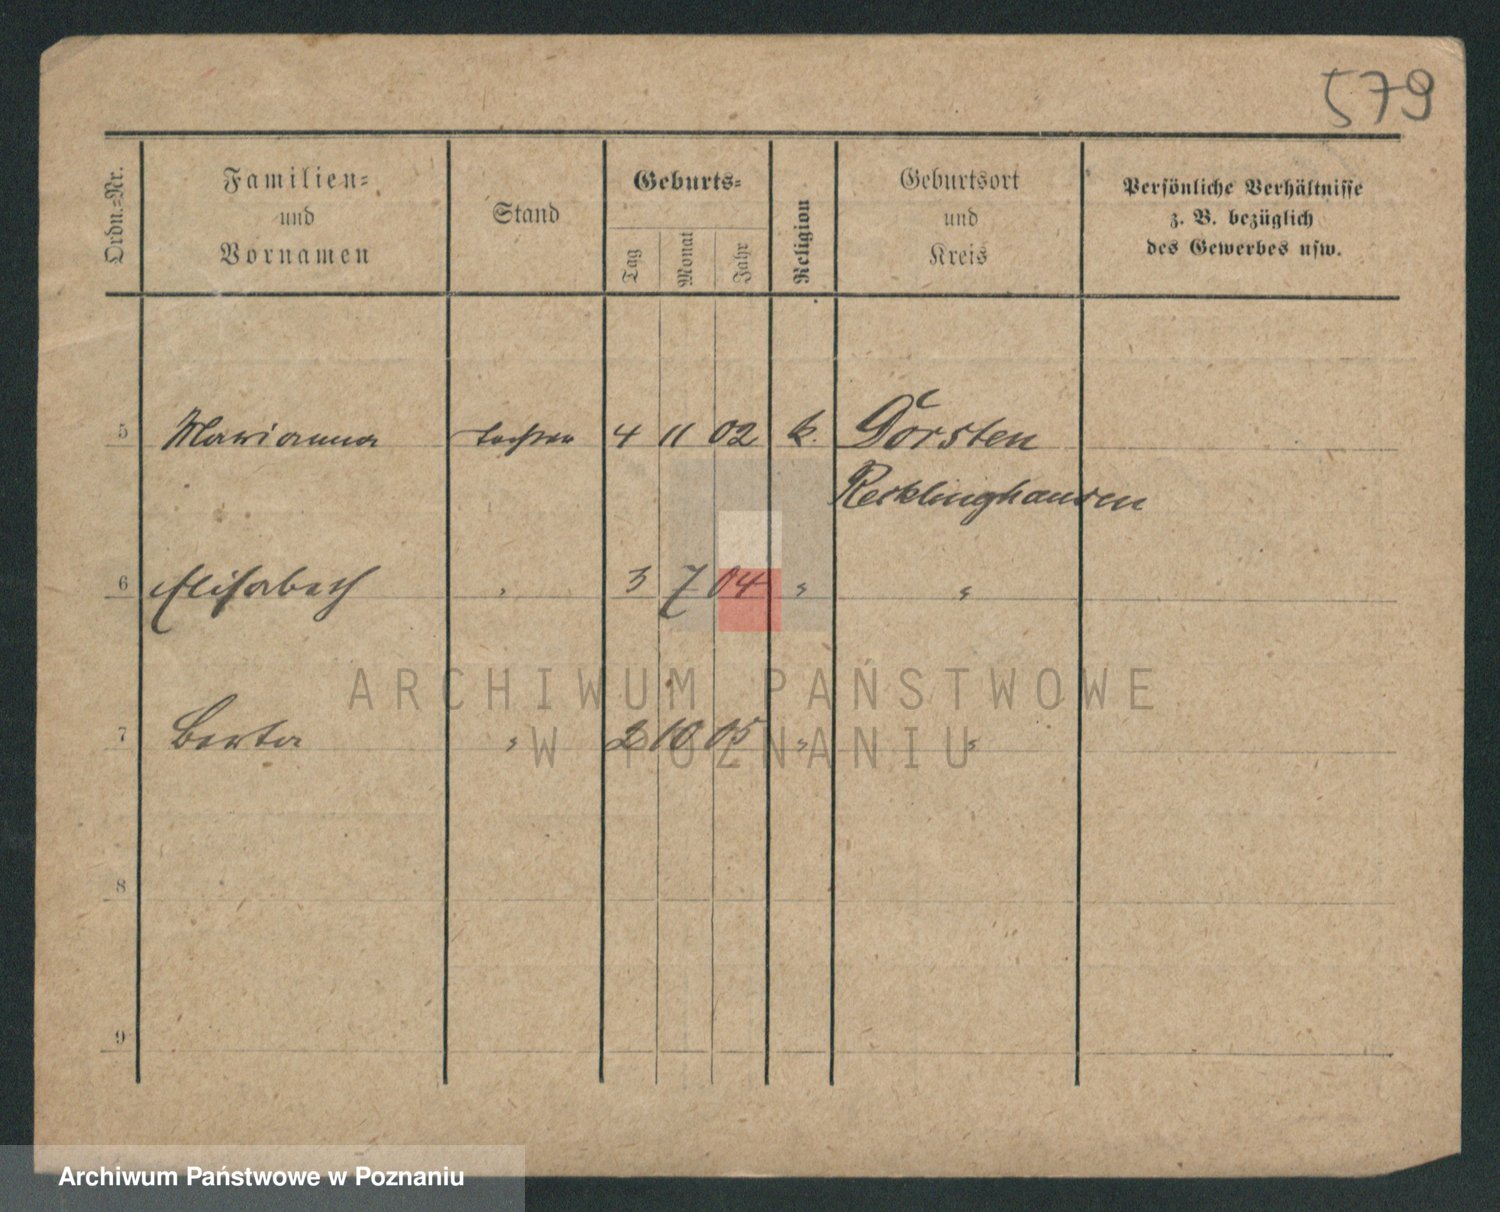 579
Ordn.-Nr.
Familien-
und
Vornamen
Stand
Geburts-
Tag
Monat
Jahr
Religion
Geburtsort
und
Kreis
Persönliche Verhältnisse
z. B. bezüglich
des Gewerbes usw.
5 Marianna Tochter 4 11 02 k. Dorsten
Recklinghausen
6 Elisabeth " 3 7 04 " "
7 Berta " 2 10 05 " "
8
9
ARCHIWUM PAŃSTWOWE
W POZNANIU
Archiwum Państwowe w Poznaniu